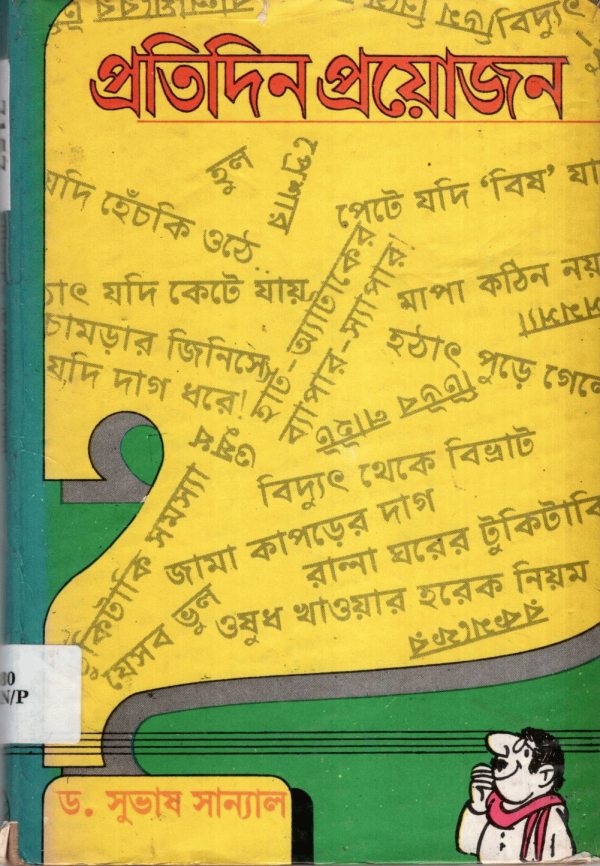 বিদ্যুৎ
প্রতিদিন প্রয়োজন
হুল
যদি হেঁচকি ওঠে..
পেটে যদি ‘বিষ’ যা
ঠাৎ যদি কেটে যায়
মাপা কঠিন নয়
চামড়ার জিনিসে
যদি দাগ ধরে!
হার্ট-অ্যাটাকের
ব্যাপার-স্যাপার!
হঠাৎ পুড়ে গেলে
বিদ্যুৎ থেকে বিভ্রাট
জামা কাপড়ের দাগ
রান্না ঘরের টুকিটাকি
ওষুধ খাওয়ার হরেক নিয়ম
কিটাকি সমস্যা
যেসব ভুল
30
N/P
ড. সুভাষ সান্যাল